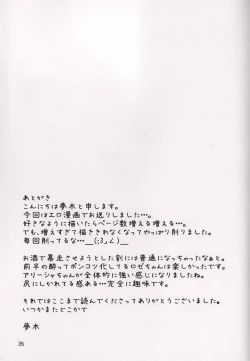 あとがき
こんにちは夢木と申します。
今回はエロ漫画でお送りしました…。
好きなように描いたらページ数増える増える…。
でも、増えすぎて描ききれなくなってやっぱり削りました。
毎回削ってるな…＿(:3」∠)＿
お酒で暴走させようとした割には普通になっちゃったなぁと。
前半の酔ってポンコツ化してるロゼちゃんは楽しかったです。
アリーシャちゃんが全体的に強い感じになりました。
尻にしかれてる感ある…完全に趣味です。
それではここまで読んでくださってありがとうございました。
いつかまたどこかで
夢木
35